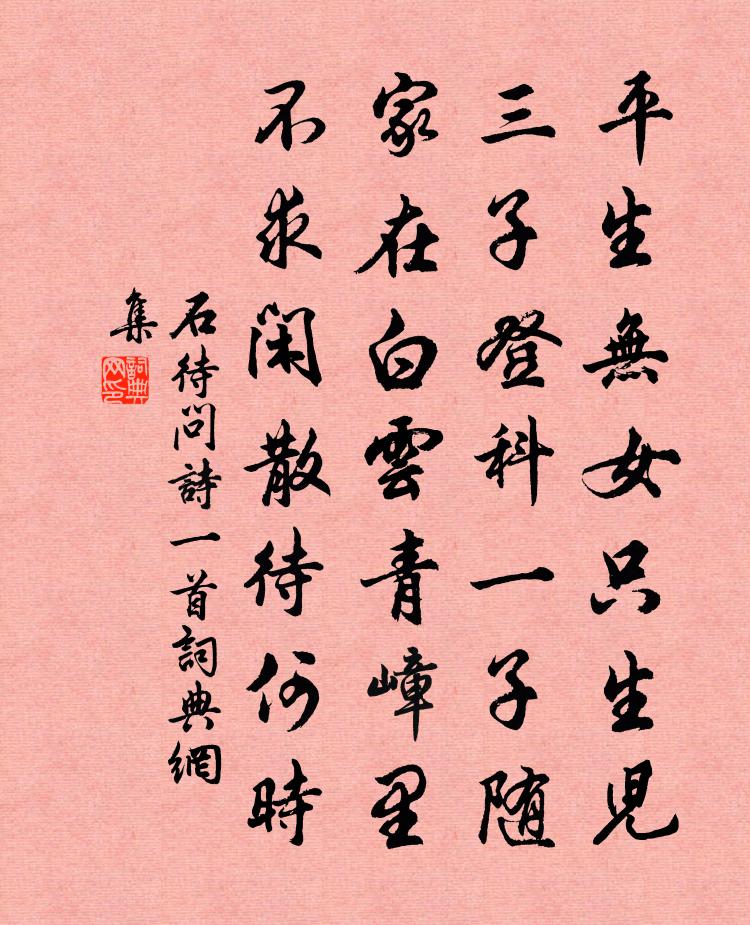 平生無女只生児
三子登科一子随
家在白雲青嶂里
不求闲散待何時
石待问詩一首詞典網
集
詞典网印